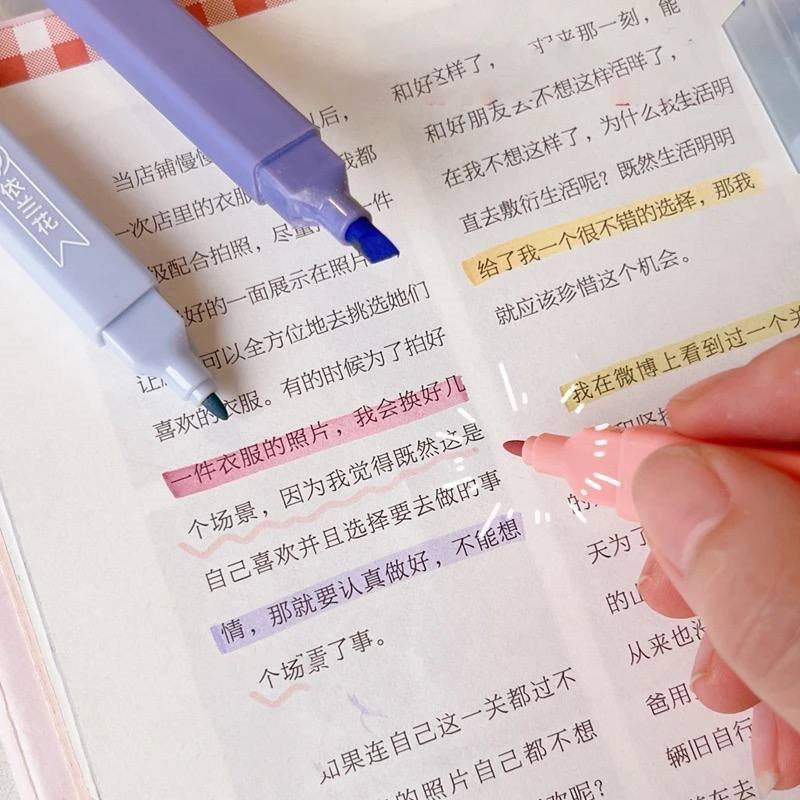 依兰花
后，
当店铺慢慢
我都
一次店里的衣服
一件
级配合拍照，尽量
好的一面展示在照片
让
可以全方位地去挑选她们
喜欢的衣服。有的时候为了拍好
一件衣服的照片，我会换好几
个场景，因为我觉得既然这是
自己喜欢并且选择要去做的事
情，那就要认真做好，不能想
个场景了事。
如果连自己这一关都过不
的照片自己都不想
欢呢？
和好这样了，
来那一刻，能
和好朋友去不想这样活咩了，
在我不想这样了，为什么找生活明
直去敷衍生活呢？既然生活明明
给了我一个很不错的选择，那我
就应该珍惜这个机会。
我在微博上看到过一个关
和坚持
的
天为了
的山
从来也没
爸用
辆旧自行
车在去